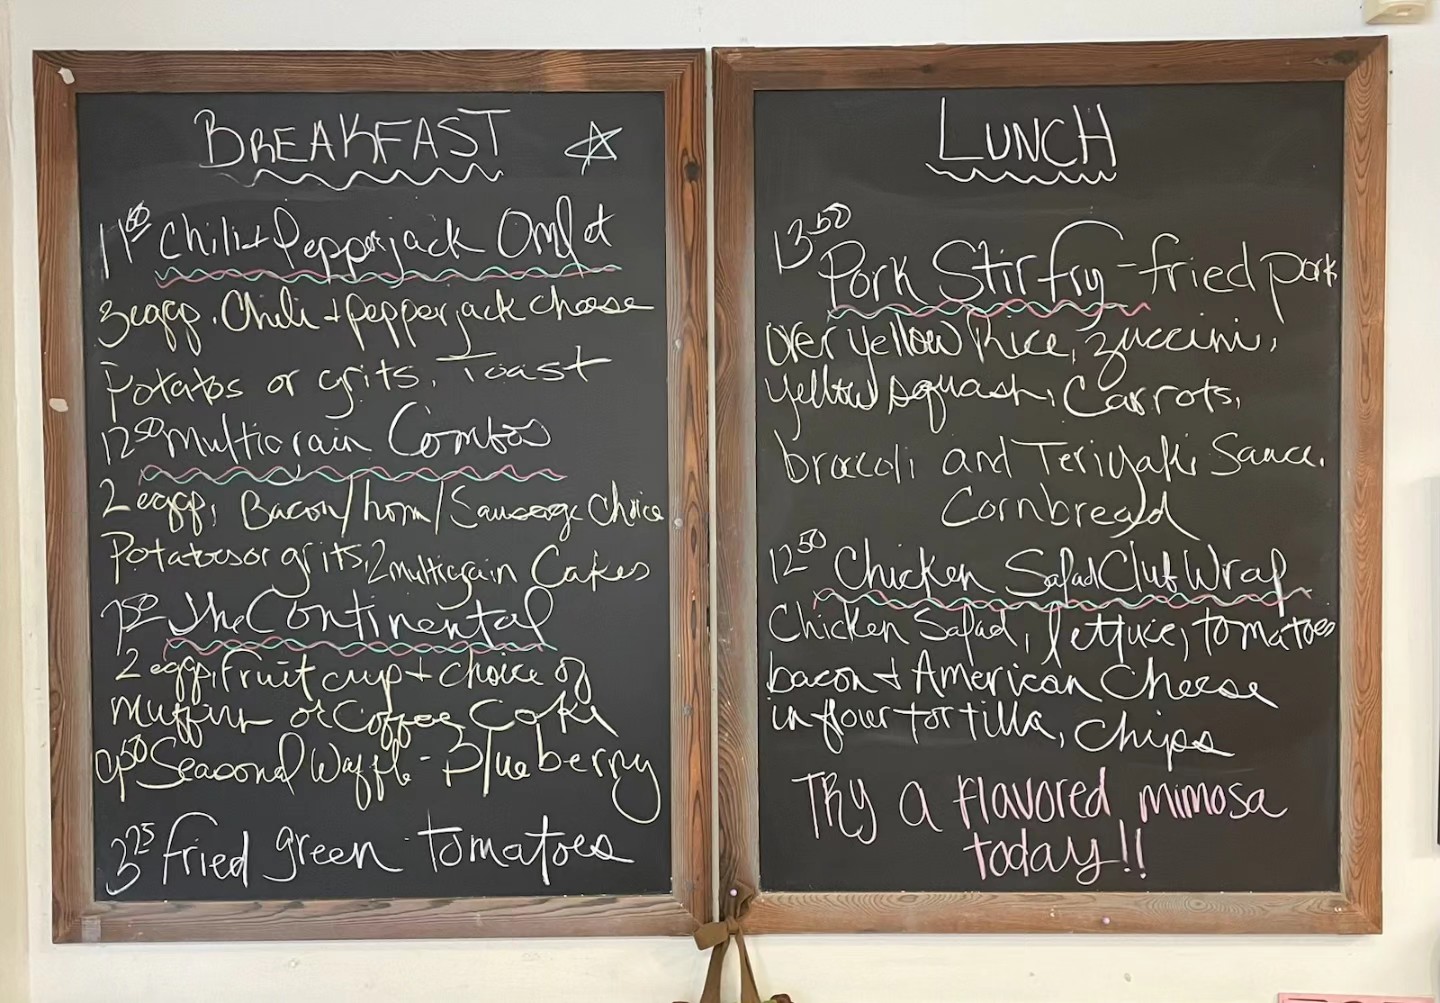 BREAKFAST
11⁵⁰ Chili + Pepperjack Omlet
3 eggs, Chili + pepperjack cheese
Potatos or grits, Toast
12⁵⁰ Multigrain Combos
2 eggs, Bacon/ham/Sausage Choice
Potatos or grits, 2 multigrain Cakes
7⁵⁰ The Continental
2 eggs, fruit cup + choice of
muffins or Coffee Cake
9⁵⁰ Seasonal Waffle - Blueberry
3²⁵ Fried green tomatoes
LUNCH
13⁵⁰ Pork Stirfry - fried pork
over yellow Rice, zuccini,
yellow squash, Carrots,
broccoli and Teriyaki Sauce.
Cornbread
12⁵⁰ Chicken Salad Club Wrap
Chicken Salad, lettuce, tomatoes
bacon + American Cheese
in flour tortilla, Chips
TRy a flavored mimosa
today!!